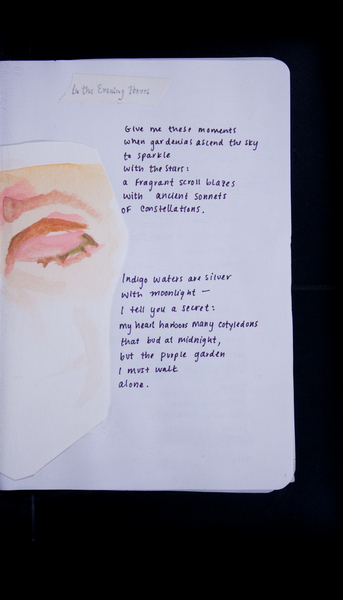 In the Evening Hours
Give me these moments
when gardenias ascend the sky
to sparkle
with the stars:
a fragrant scroll blazes
with ancient sonnets
of constellations.
Indigo waters are silver
with moonlight —
I tell you a secret:
my heart harbors many cotyledons
that bud at midnight,
but the purple garden
I must walk
alone.